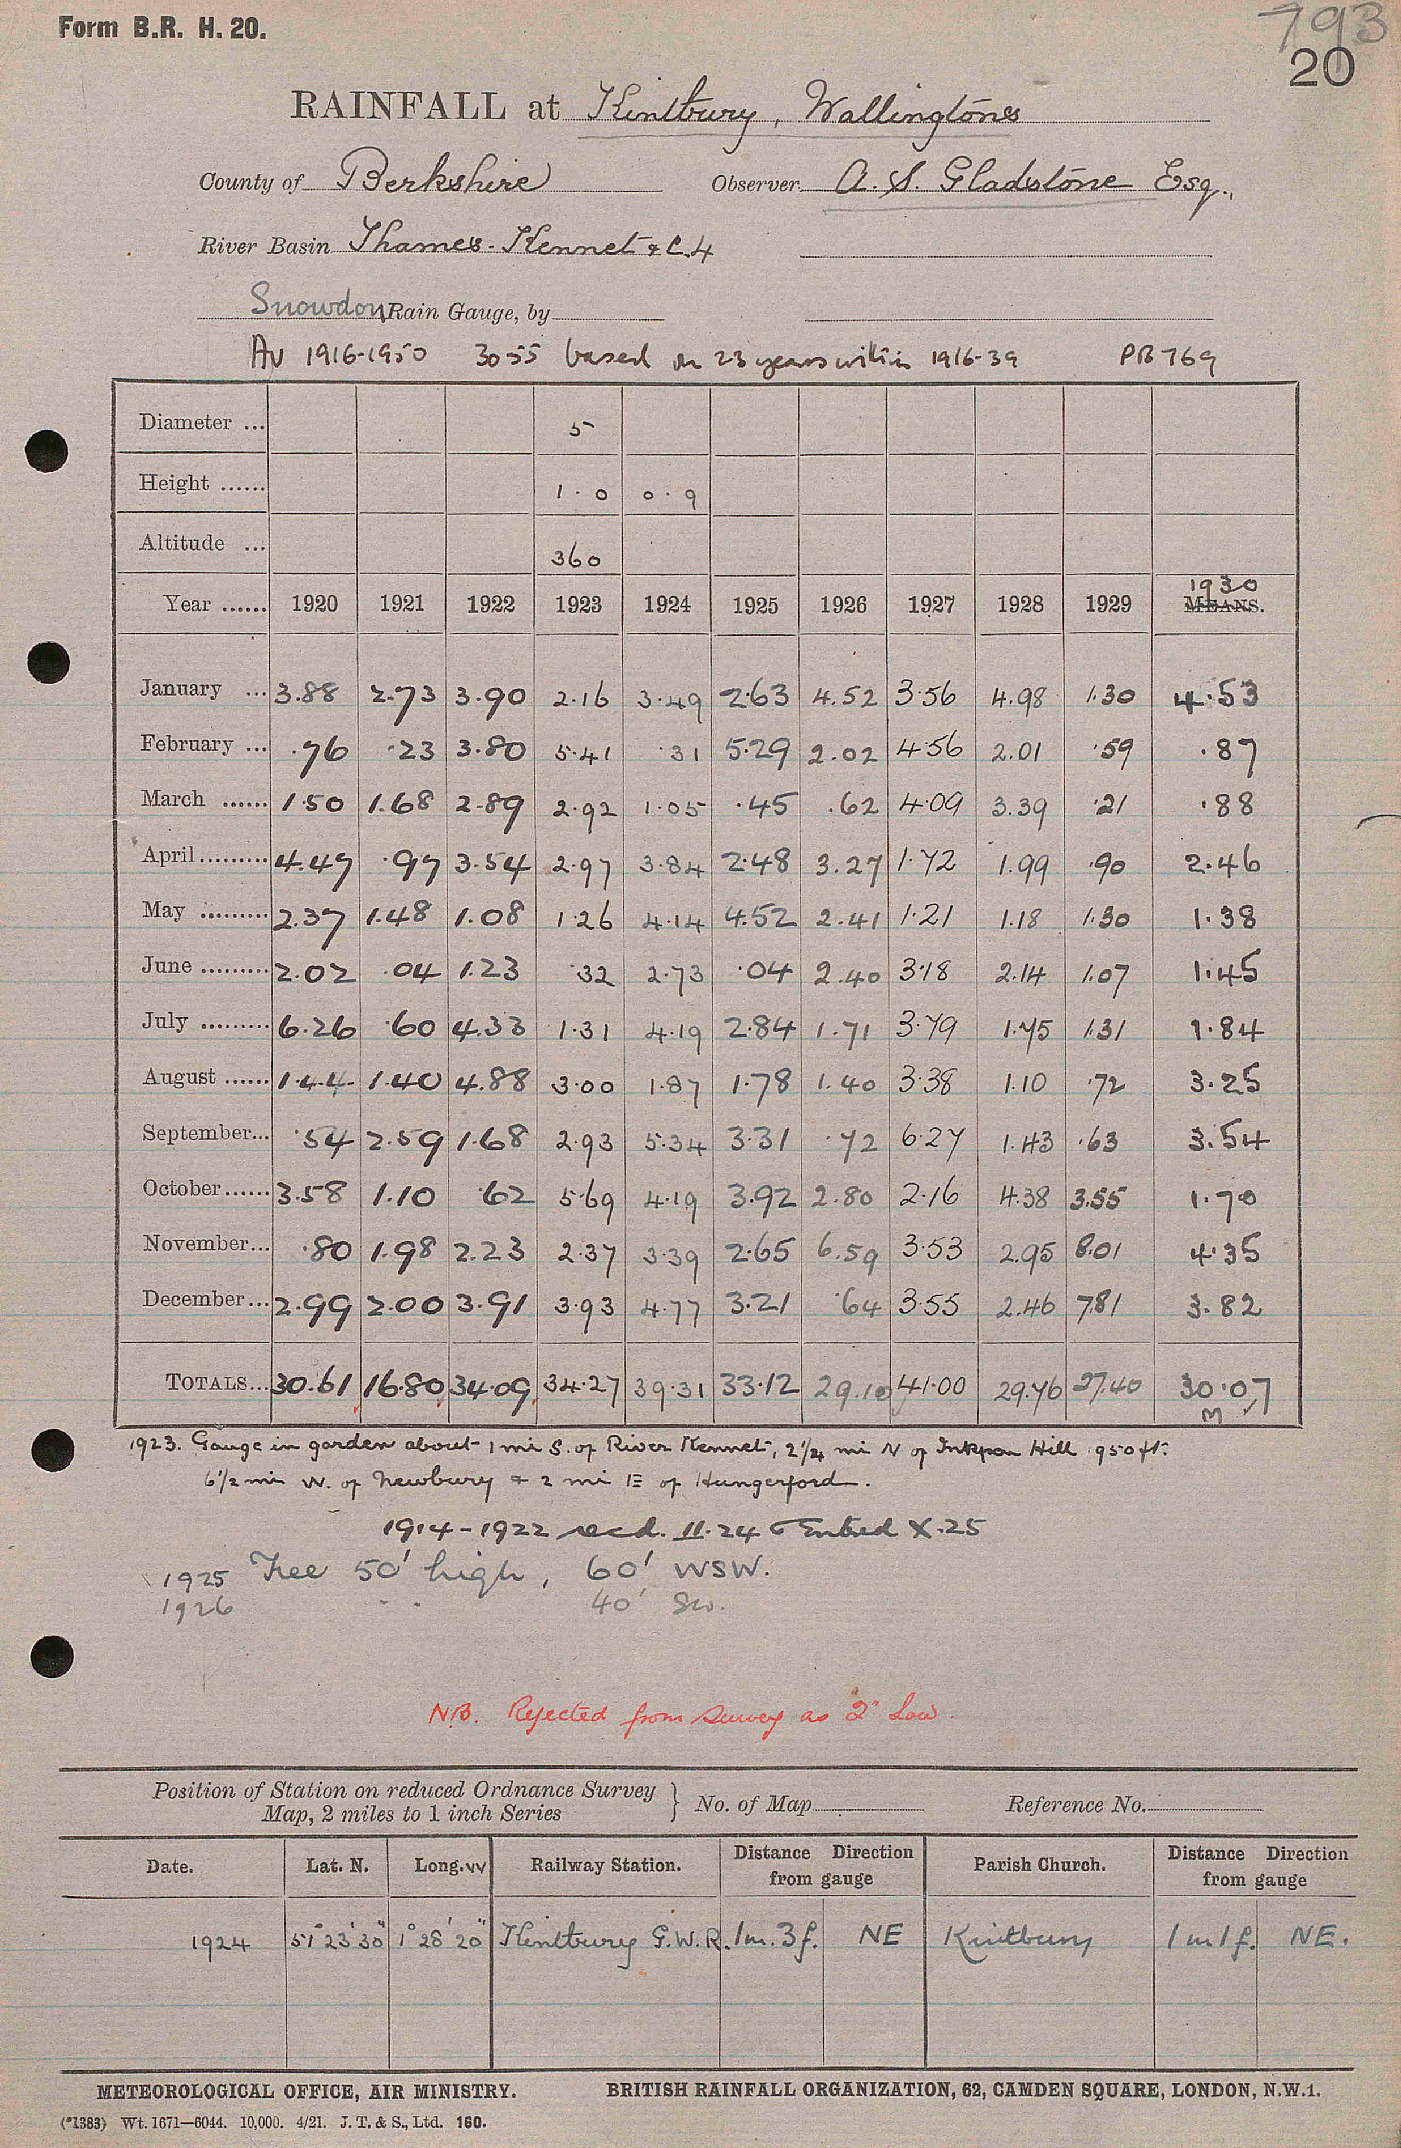 Form B.R. H. 20.
793
20
RAINFALL at Kintbury, Wallingtons
County of Berkshire Observer A. S. Gladstone Esq.,
River Basin Thames - Kennet & C.4
Snowdon Rain Gauge, by
Av 1916-1950 30.55 based on 23 years within 1916-39 PB 769
Diameter ... 5
Height ...... 1.0 0.9
Altitude ... 360
1930
Year ...... 1920 1921 1922 1923 1924 1925 1926 1927 1928 1929 MEANS.
January ... 3.88 2.73 3.90 2.16 3.49 2.63 4.52 3.56 4.98 1.30 4.53
February ... .76 .23 3.80 5.41 .31 5.29 2.02 4.56 2.01 .59 .87
March ...... 1.50 1.68 2.89 2.92 1.05 .45 .62 4.09 3.39 .21 .88
April ......... 4.47 .97 3.54 2.97 3.84 2.48 3.27 1.72 1.99 .90 2.46
May ......... 2.37 1.48 1.08 1.26 4.14 4.52 2.41 1.21 1.18 1.30 1.38
June ......... 2.02 .04 1.23 .32 2.73 .04 2.40 3.18 2.14 1.07 1.45
July ......... 6.26 .60 4.33 1.31 4.19 2.84 1.71 3.79 1.75 1.31 1.84
August ...... 1.44 1.40 4.88 3.00 1.87 1.78 1.40 3.38 1.10 .72 3.25
September... .54 2.59 1.68 2.93 5.34 3.31 .72 6.27 1.43 .63 3.54
October...... 3.58 1.10 .62 5.69 4.19 3.92 2.80 2.16 4.38 3.55 1.70
November... .80 1.98 2.23 2.37 3.39 2.65 6.59 3.53 2.95 8.01 4.35
December... 2.99 2.00 3.91 3.93 4.77 3.21 .64 3.55 2.46 7.81 3.82
TOTALS... 30.61 16.80 34.09 34.27 39.31 33.12 29.10 41.00 29.76 27.40 30.07
M ✓
1923. Gauge in garden about 1 mi S. of River Kennet, 2 1/4 mi N of Inkpen Hill 950 ft.
6 1/2 mi W. of Newbury & 2 mi E of Hungerford.
1914-1922 recd. II.24 & Entrd X.25
1925 Tree 50' high, 60' WSW.
1926 " " 40' SW.
NB. Rejected from survey as 2" low.
Position of Station on reduced Ordnance Survey
Map, 2 miles to 1 inch Series } No. of Map Reference No.
Date. Lat. N. Long. W Railway Station. Distance Direction from gauge Parish Church. Distance Direction from gauge
1924 51° 23' 30" 1° 28' 20" Kintbury G.W.R. 1m. 3f. NE Kintbury 1m 1f. NE.
METEOROLOGICAL OFFICE, AIR MINISTRY. BRITISH RAINFALL ORGANIZATION, 62, CAMDEN SQUARE, LONDON, N.W.1.
(*1383) Wt. 1671—6044. 10,000. 4/21. J. T. & S., Ltd. 160.